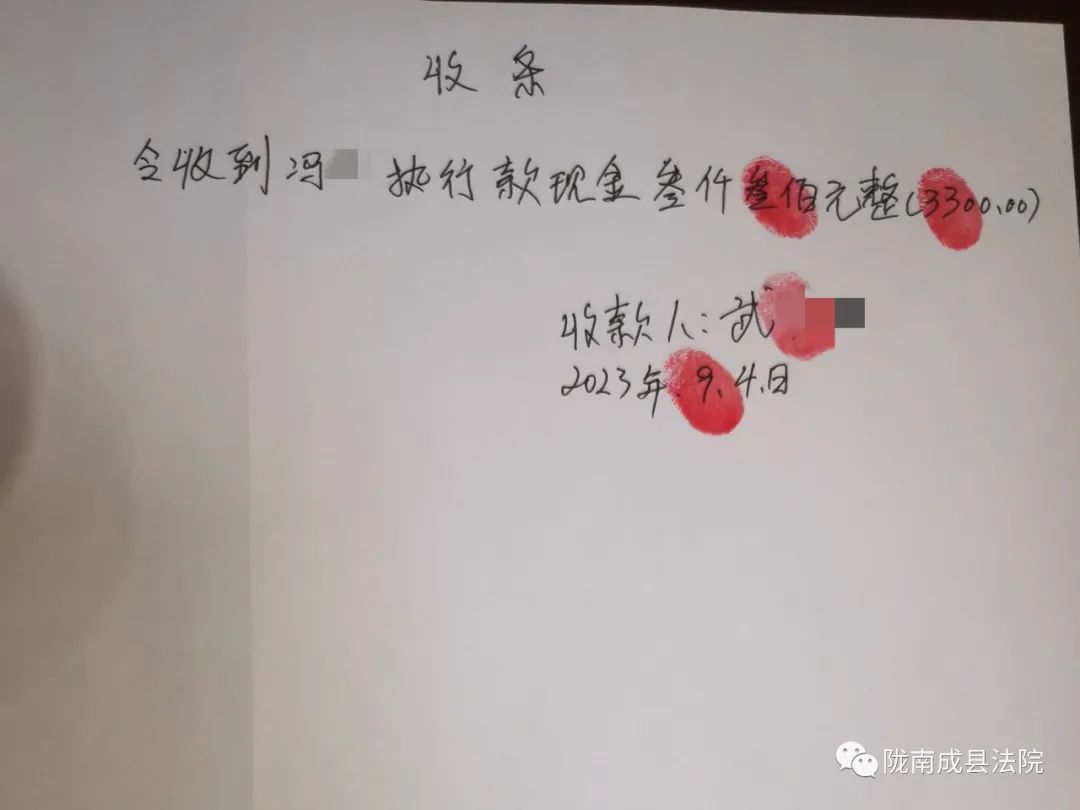 收条
今收到冯 执行款现金叁仟叁佰元整(3300.00)
收款人:武
2023年.9.4.日
陇南成县法院